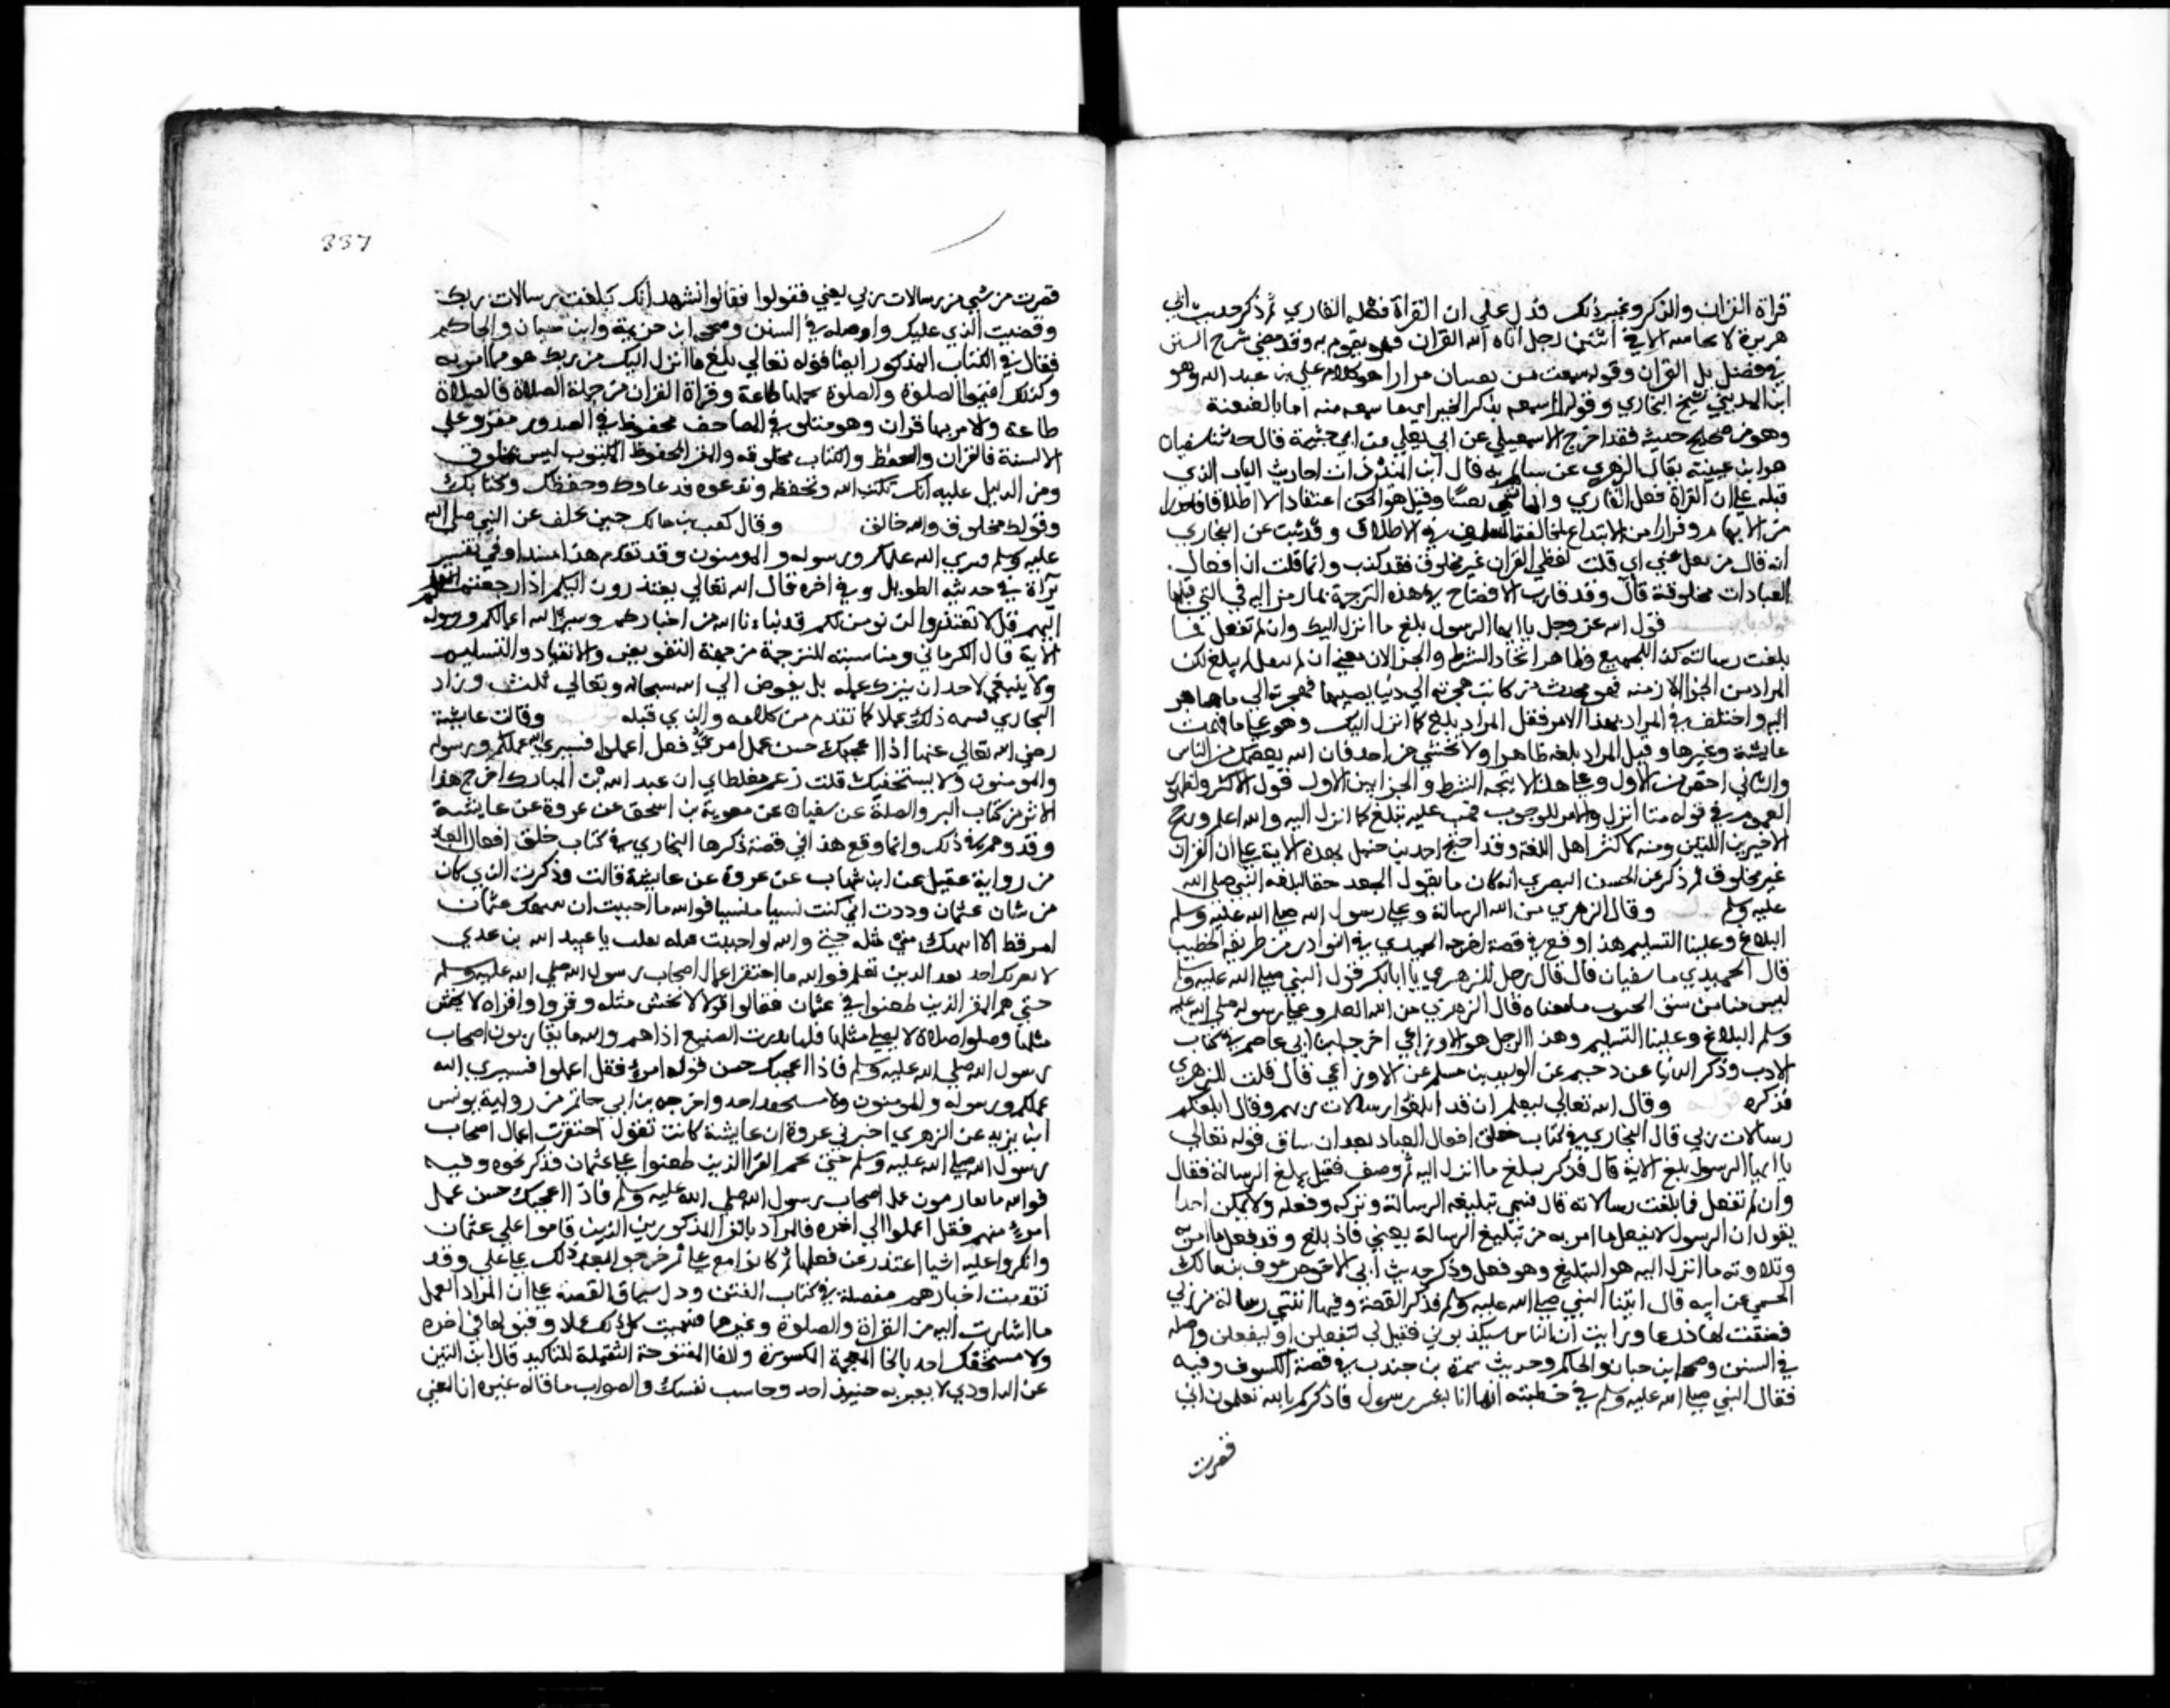 قراة القران والذكر وغير ذلك فدل على ان القراة فعل القاري ثم ذكر حديث ابي
هريرة لا تحاسد الا في اثنتين رجل اتاه الله القران فهو يقوم به وقد مضي شرح المتن
في فضل القران وقوله سمعت من سفيان مرارا هو كلام علي بن عبد الله وهو
ابن المديني شيخ البخاري وقوله لم اسمعه يذكر الخبر اي ما سمعه منه الا بالعنعنة
وهو من صحيح حديثه فقد اخرج الاسمعيلي عن ابي يعلي عن ابي خيثمة قال حدثنا سفيان
هو ابن عيينة قال الزهري عن سالم به قال ابن المنير ان احاديث الباب الذي
قبله على ان القراة فعل القاري وانها تسمي تغنيا وهذا هو الحق اعتقادا لا اطلاقا حذرا
من الايهام وفرارا من الابتداع لمخالفة السلف في الاطلاق وقد ثبت عن البخاري
انه قال من نقل عني اي قلت لفظي القران غير مخلوق فقد كذب وانما قلت ان افعال
العباد مخلوقة قال وقد قارب الافصاح في هذه الترجمة بما رمز اليه في التي قبلها
قول الله عز وجل يا ايها الرسول بلغ ما انزل اليك وان لم تفعل فما
بلغت رسالته كذا للجميع وظاهره اتحاد الشرط والجزا لان معني ان لم تفعل لم تبلغ لكن
المراد من الجزا لازمه فهو كحديث من كانت هجرته الي دنيا يصيبها فهجرته الي ما هاجر
اليه واختلف في المراد بهذا الامر فقيل المراد بلغ كما انزل اليك وهو على ما فهمت
عايشة وغيرها وقيل المراد بلغه ظاهرا ولا تخشي من احد فان الله يعصمك من الناس
والثاني اخص من الاول وعلى هذا لا يتحد الشرط والجزا لكن الاول قول الاكثر لظهور
العموم في قوله ما انزل والامر للوجوب فيجب عليه تبليغ كلما انزل اليه والله اعلم ورجح
الاخير ابن التين ونسبه لاكثر اهل اللغة وقد احتج احمد بن حنبل بهذه الاية على ان القران
غير مخلوق ثم ذكر عن الحسن البصري انه كان ما يقول الجعد حقا لبلغه النبي صلي الله
عليه وسلم وقال الزهري من الله الرسالة وعلى رسول الله صلي الله عليه وسلم
البلاغ وعلينا التسليم هذا وقع في قصة اخرجها الحميدي في النوادر من طريقه الخطيب
قال الحميدي ما سفيان قال قال رجل للزهري يا ابا بكر قول النبي صلي الله عليه وسلم
ليس منا من شق الجيوب ما معناه قال الزهري من الله العلم وعلى رسوله صلي الله عليه
وسلم البلاغ وعلينا التسليم وهذا الرجل هو الاوزاعي اخرجه ابن ابي عاصم في كتاب
الادب وذكر ابن ابي الدنيا عن دحيم عن الوليد بن مسلم عن الاوزاعي قال قلت للزهري
فذكره وقال الله تعالي ليعلم ان قد ابلغوا رسالات ربهم وقال ابلغكم
رسالات ربي قال البخاري في كتاب خلق افعال العباد بعد ان ساق قوله تعالي
يا ايها الرسول بلغ الاية قال فذكر تبليغ ما انزل اليه ثم وصف فعل تبليغ الرسالة فقال
وان لم تفعل فما بلغت رسالاته قال فسمي تبليغه الرسالة وتركه وفعله ولا يمكن احدا
يقول ان الرسول لم يفعل ما امر به من تبليغ الرسالة يعني فاذا بلغ وقد فعل ما امر به
وتلاوته ما انزل اليه هو التبليغ وهو فعل وذكر حديث ابي الاحوص عوف بن مالك
الجشمي عن ابيه قال اتيت النبي صلي الله عليه وسلم فذكر القصة وفيها اتتني رسالة من ربي
فضقت لها ذرعا ورايت ان الناس سيكذبوني فقيل لي لتفعلن او ليفعلن واصله
في السنن وصححه ابن حبان والحاكم وحديث سمرة بن جندب في قصة الكسوف وفيه
فقال النبي صلي الله عليه وسلم في خطبته انما انا بشر رسول فاذكركم بالله ان كنتم تعلمون اني
قصرت
337
قصرت من شي من رسالات ربي يعني فقولوا فقالوا نشهد انك بلغت رسالات ربك
وقضيت الذي عليك واصله في السنن وصححه ابن خزيمة وابن حبان والحاكم
فقال في الكتاب المذكور ايضا قوله تعالي بلغ ما انزل اليك من ربك هو مما امر به
وكذلك اقيموا الصلوة والصلوة بجملتها طاعة وقراة القران من جملة الصلاة فالصلاة
طاعة والامر بها قران وهو مكتوب في المصاحف محفوظ في الصدور مقروء على
الالسنة فالقراة والحفظ والكتاب مخلوقه والمقرو المحفوظ المكتوب ليس بمخلوق
ومن الدليل عليه انك تكتب الله وتحفظه وتدعوه فدعاوك وحفظك وكتابك
وقولك مخلوق والله خالق وقال كعب بن مالك حين تخلف عن النبي صلي الله
عليه وسلم وسيري الله عملكم ورسوله والمومنون وقد تقدم هذا مسندا في تفسير
براة في حديثه الطويل وفي اخره قال الله تعالي يعتذرون اليكم اذا رجعتم
اليهم قل لا تعتذروا لن نومن لكم قد نبانا الله من اخباركم وسيري الله عملكم ورسوله
الاية قال الكرماني ومناسبته للترجمة من جهة التفويض والانقياد والتسليم
ولا ينبغي لاحد ان يزكي عمله بل يفوض الي الله سبحانه وتعالي قلت ومراد
البخاري تسمية ذلك عملا كما تقدم من كلامه والذي قبله وقالت عايشة
رضي الله تعالي عنها اذا اعجبك حسن عمل امرئ فقل اعملوا فسيري الله عملكم ورسوله
والمومنون ولا يستخفنك قلت زعم مغلطاي ان عبد الله بن المبارك اخرج هذا
الاثر من كتاب البر والصلة عن سفيان عن معوية بن اسحق عن عروة عن عايشة
وقد وهم في ذلك وانما وقع هذا في قصة ذكرها البخاري في كتاب خلق افعال العباد
من رواية عقيل عن ابن شهاب عن عروة عن عايشة قالت وذكرت الذي كان
من شان عثمان وددت اني كنت نسيا منسيا فوالله ما احببت ان ينتهك عثمان
امر قط الا انتهك مني مثله حتي والله لو احببت قتله لقتلت يا عبيد الله بن عدي
لا يغرنك احد بعد الذين تعلم فوالله ما احتقرت اعمال اصحاب رسول الله صلي الله عليه وسلم
حتي نجم النفر الذين طعنوا في عثمان فقالوا قولا لا يحسن مثله وقروا قراة لا يحسن
مثلها وصلوا صلاة لا يصلي مثلها فلما تدبرت الصنيع اذا هم والله ما يقاربون اصحاب
رسول الله صلي الله عليه وسلم فاذا اعجبك حسن قول امرئ فقل اعملوا فسيري الله
عملكم ورسوله والمومنون ولا يستخفنك احد واخرجه ابن ابي حاتم من رواية يونس
ابن يزيد عن الزهري اخبرني عروة ان عايشة كانت تقول احتقرت اعمال اصحاب
رسول الله صلي الله عليه وسلم حتي نجم القرا الذين طعنوا على عثمان فذكر نحوه وفيه
فوالله ما يقاربون عمل اصحاب رسول الله صلي الله عليه وسلم فاذا اعجبك حسن عمل
امرئ منهم فقل اعملوا الي اخره فالمراد بالقرا المذكورين الذين قاموا على عثمان
وانكروا عليه اشيا اعتذر عن فعلها ثم كانوا مع علي ثم خرجوا بعد ذلك على علي وقد
تقدمت اخبارهم مفصلة في كتاب الفتن ودل سياق القصة على ان المراد العمل
ما اشارت اليه من القراة والصلوة وغيرهما فسمت كل ذلك عملا وقولها في اخره
ولا يستخفنك احد بالخا المعجمة المكسورة والفا المفتوحة والنون الثقيلة للتاكيد قال ابن التين
عن الداودي لا تغتر به حتي احد وحاسب نفسك والصواب ما قاله غيره ان المعني